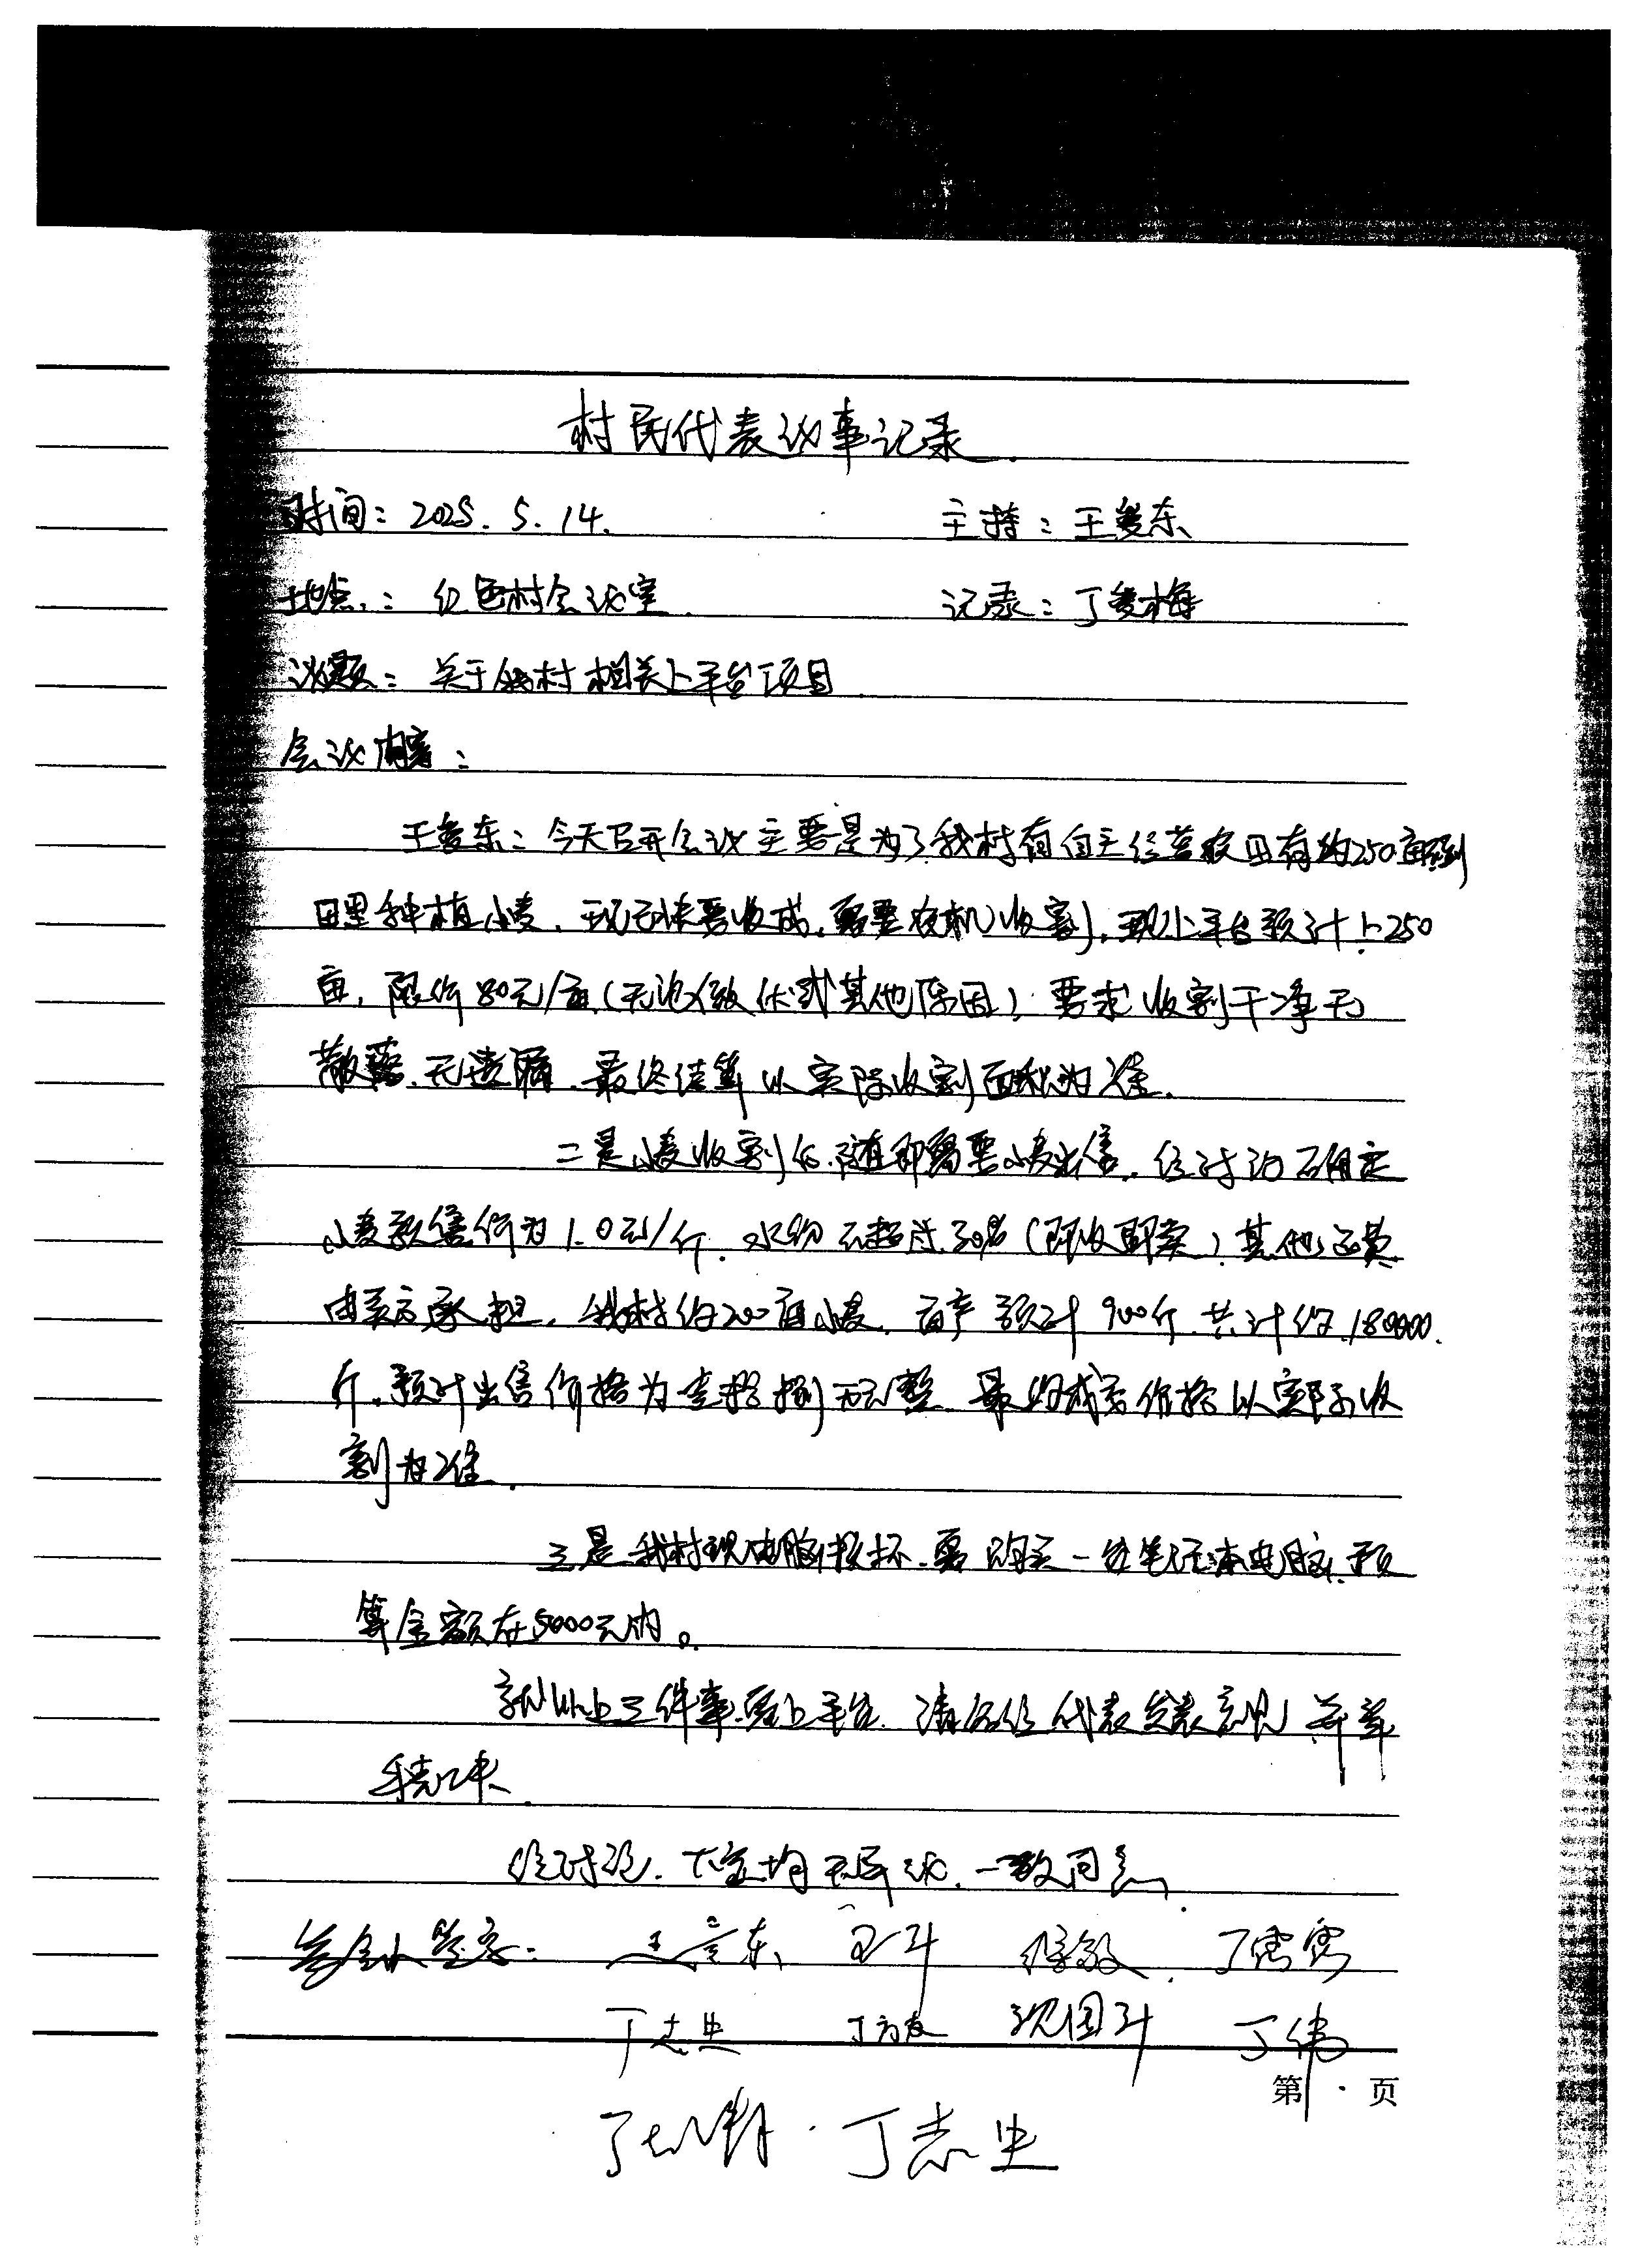 村民代表议事记录.
时间：2025. 5. 14. 主持：王爱东
地点：红色村会议室 记录：丁爱梅
议题：关于我村相关上平台项目
会议内容：
王爱东：今天召开会议主要是为了我村有自主经营农田有约250亩
田里种植小麦，现无法要收成，需要农机收割，现上平台预计上250
亩，限价80元/亩（无论倒伏或其他原因），要求收割干净无
散落、无遗漏，最终结算以实际收割面积为准．
二是小麦收割后，随即需要小麦出售，经讨论确定
小麦预售价为1.0元/斤，水份不超过30%（即收即卖），其他运费
由买方承担，我村约200亩小麦，亩产预计900斤，共计约180000
斤，预计出售价格为壹拾捌万元整，最终成交价格以实际收
割为准．
三是我村现电脑损坏，需购买一台笔记本电脑，预
算金额在5000元内。
就以上三件事要上平台，请各位代表发表意见，并举
手表决．
经讨论，大家均无异议，一致同意．
参会人签字：
丁志生 丁伟
第1页
丁志生